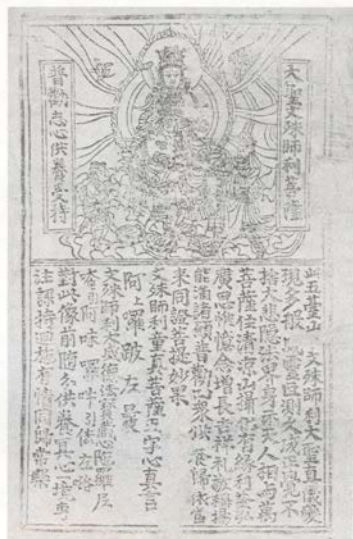 大聖文殊師利菩薩
普勸志心供養受持
此五臺山 文殊師利大聖真儀變
現多般威靈叵測久成正覺不
捨大悲隱法界身示天人相與萬
菩薩住清涼山攝化有緣利益弘
廣思惟憶念增長吉祥禮敬稱揚
能滿諸願普勸四眾供養歸依當
來同證菩提妙果
文殊師利童真菩薩五字心真言
阿上囉跛左曩
文殊師利大威德法寶藏心陀羅尼
唵引阿味囉吽引佉左略
對此像前隨分供養冥心一境專
注課持迴施有情同歸常樂